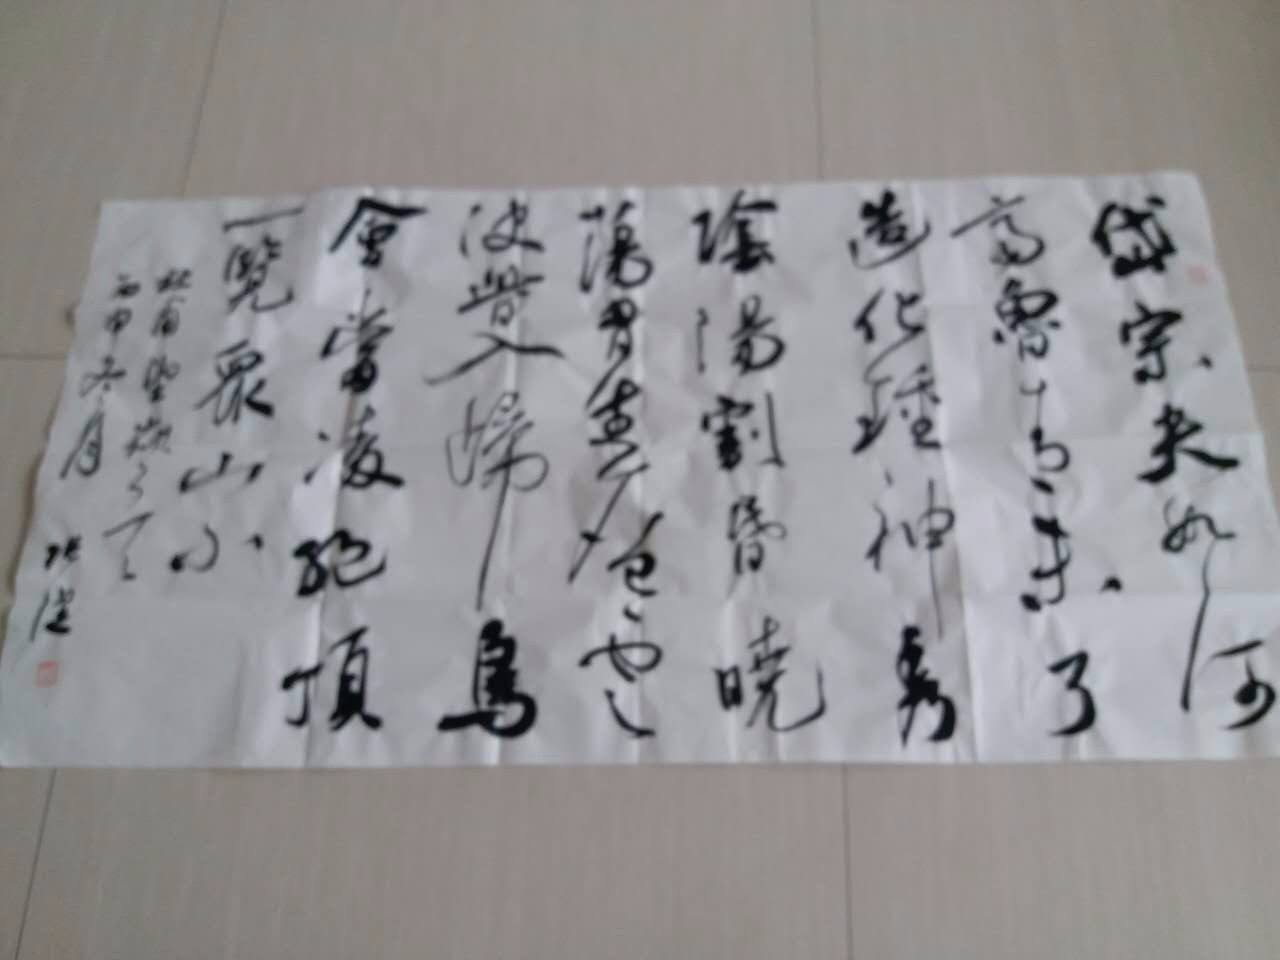 岱宗夫如何
齊魯青未了
造化鍾神秀
陰陽割昏曉
蕩胸生層雲
決眥入歸鳥
會當凌絕頂
一覽衆山小
杜甫望嶽
丙申冬月